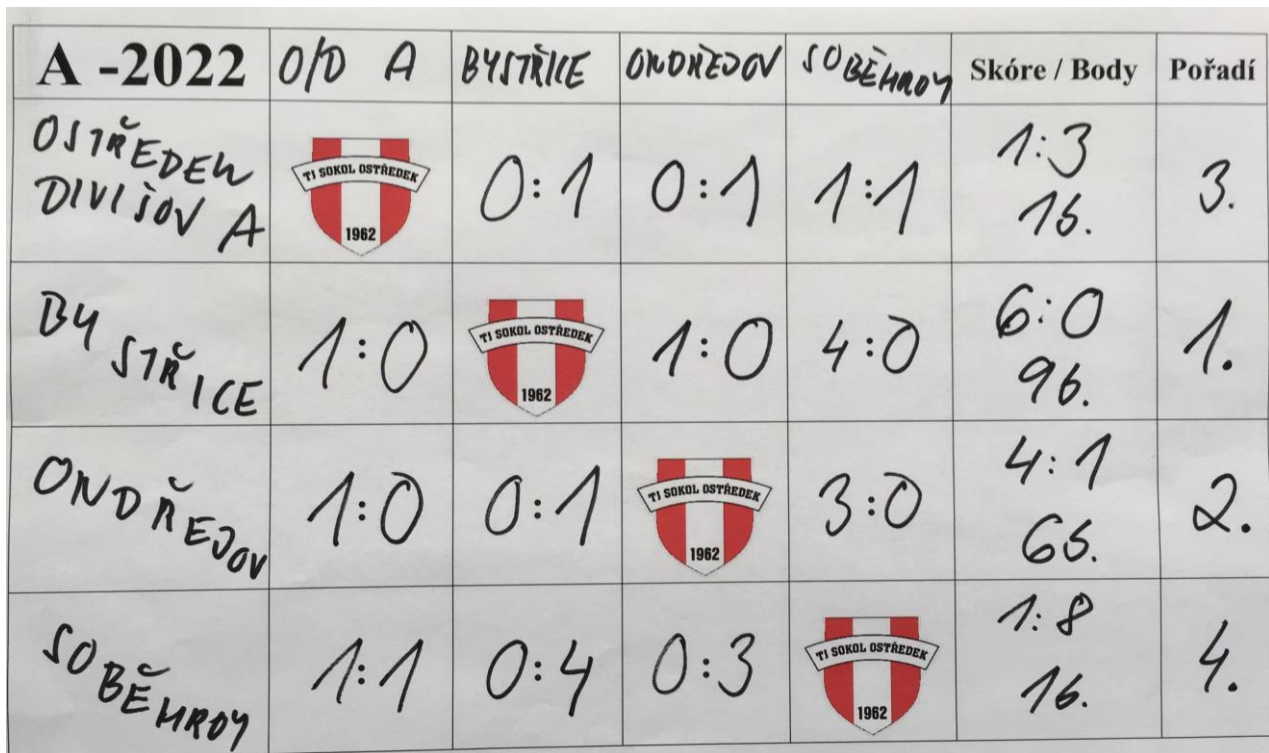 A -2022 O/D A BYSTŘICE ONDŘEJOV SOBĚHRDY Skóre / Body Pořadí
OSTŘEDEK
DIVIŠOV A
TJ SOKOL OSTŘEDEK
1962
0:1 0:1 1:1
1:3
1b.
3.
BYSTŘICE
1:0
TJ SOKOL OSTŘEDEK
1962
1:0 4:0
6:0
9b.
1.
ONDŘEJOV
1:0 0:1
TJ SOKOL OSTŘEDEK
1962
3:0
4:1
6b.
2.
SOBĚHRDY
1:1 0:4 0:3
TJ SOKOL OSTŘEDEK
1962
1:8
1b.
4.